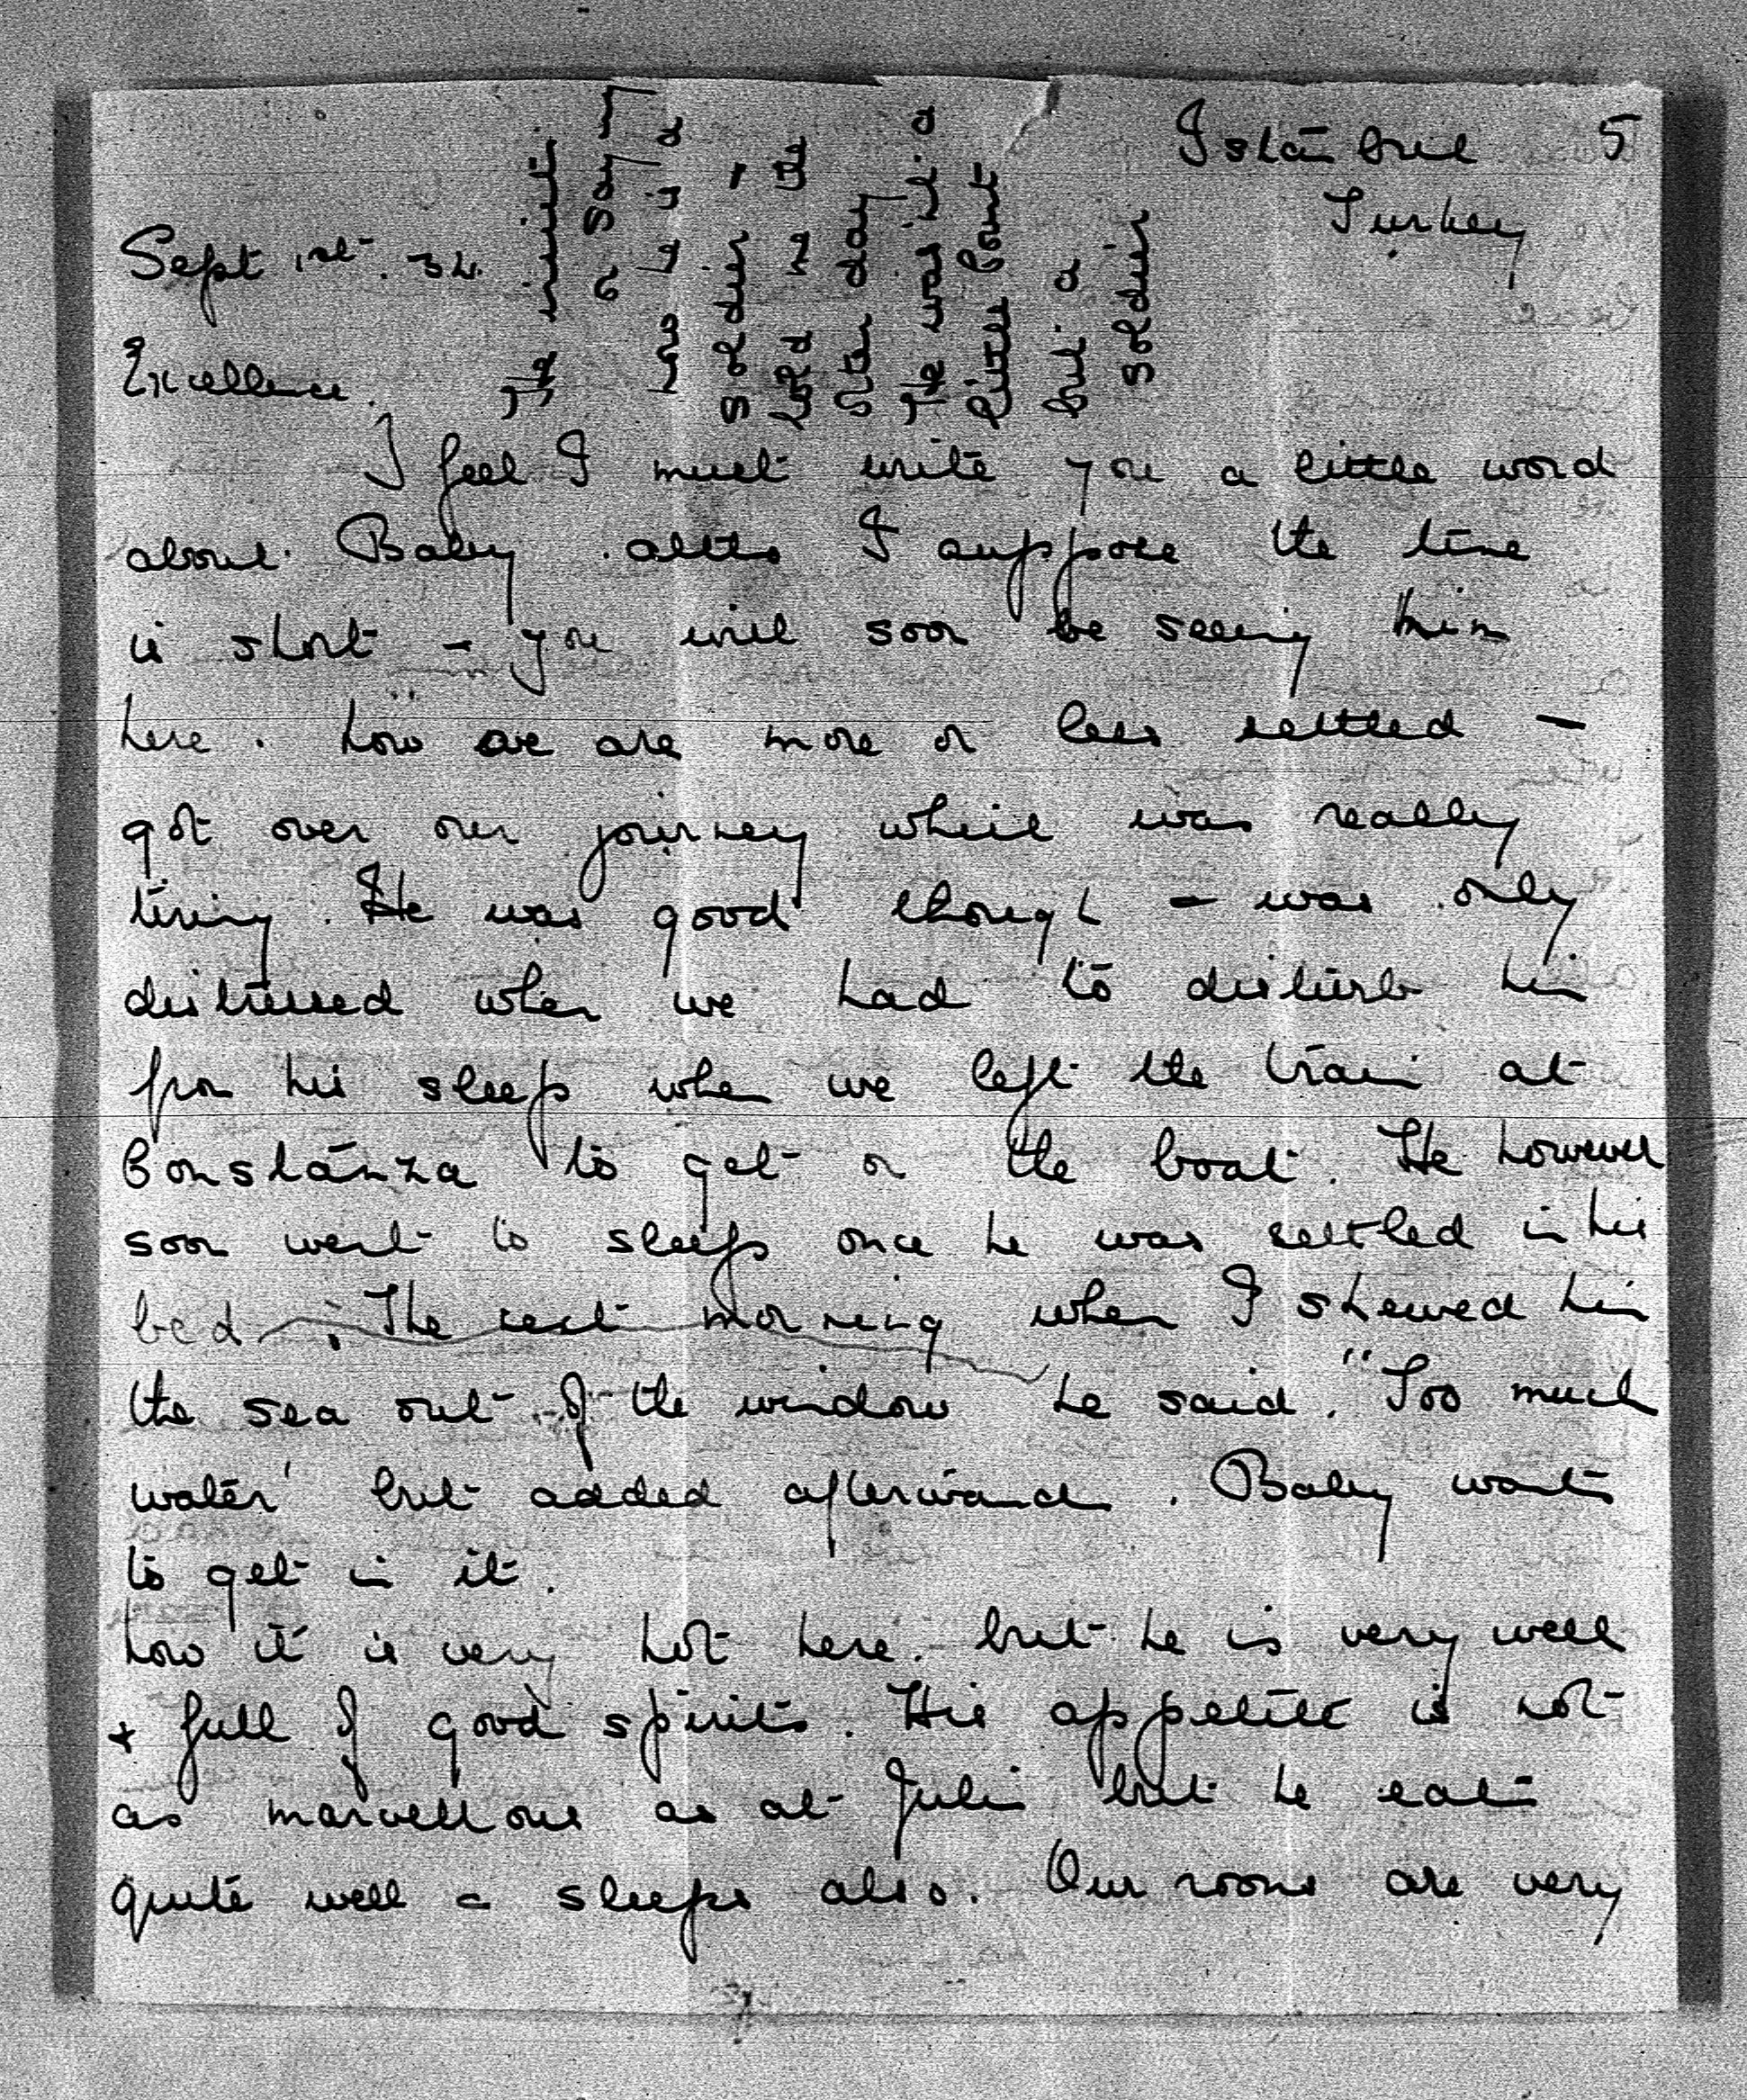 Istanbul 5
Turkey
Sept 1st. 34.
Excellence.
I feel I must write you a little word
about Baby. altho I suppose the time
is short - you will soon be seeing him
here. Now we are more or less settled -
got over our journey which was really
tiring. He was good though - was only
distressed when we had to disturb him
from his sleep when we left the train at
Constanza to get on the boat. He however
soon went to sleep once he was settled in his
bed. The next morning when I shewed him
the sea out of the window he said. "Too much
water' but added afterwards. Baby wants
to get in it.
Now it is very hot here. but he is very well
+ full of good spirits. His appetite is not
as marvellous as at Julis but he eats
quite well & sleeps also. Our rooms are very
He insists
on saying
now he is a
soldier +
told me the
other day
He was not a
little Count
but a
soldier